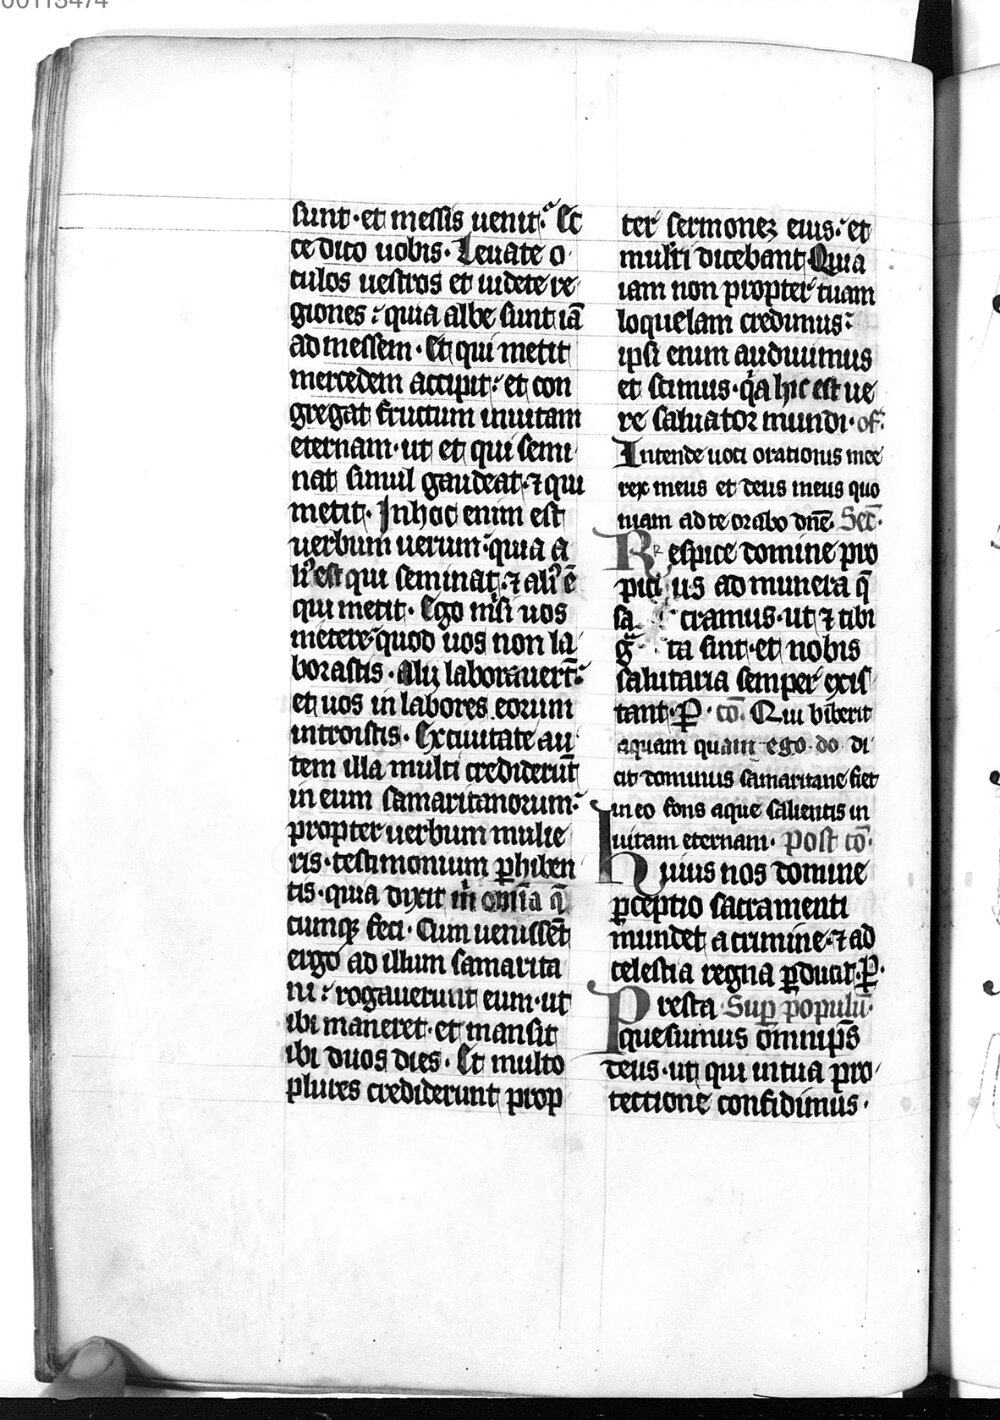 00113474
sunt · et messis uenit ·̓ Ec
ce dico uobis · Leuate o
culos uestros et uidete re
giones ·̓ quia albe sunt iā
ad messem · Et qui metit
mercedem accipit ·̓ et con
gregat fructum inuitam
eternam · ut et qui semi
nat simul gaudeat · ⁊ qui
metit · Inhoc enim est
uerbum uerum ·̓ quia a
liꝰ est qui seminat · ⁊ aliꝰ ē
qui metit · Ego misi uos
metere ·̓ quod uos non la
borastis · Alij laborauerūt ·̓
et uos in labores eorum
introistis · Exciuitate au
tem illa multi crediderūt
in eum samaritanorum ·̓
propter uerbum mulie
ris · testimonium ꝑhiben
tis · quia dixit m̍ omīa q̄
cumqꝫ feci · Cum uenissēt
ergo ad illum samarita
ni ·̓ rogauerunt eum · ut
ibi maneret · et mansit
ibi duos dies · Et multo
plures crediderunt prop
ter sermoneꝫ eius ·̓ et
mulieri dicebant Quia
iam non propter tuam
loquelam credimus ·̓
ipsi enim audiuimus
et scimus · qͥa hic est ue
re saluator mundi · of̄.
Intende uoci orationis mee
rex meus et deus meus quo
niam ad te orabo dn̄e. Sec̄.
Respice domine pro
pici us ad munera q̄
sa cramus · ut ⁊ tibi
gͣ ta sint · et nobis
salutaria semper exis
tant · ꝑ · cō. Qui biberit
aquam quam ego do di
cit dominus samaritane fiet
in eo fons aque salientis in
uitam eternam · post cō.
Huius nos domine
ꝑceptio sacramenti
mundet a crimine · ⁊ ad
celestia regna ꝑducat. ꝑ.
Presta Suꝑ populū.
quesumus omnip̄s
deus · ut qui intua pro
tectione confidimus ·